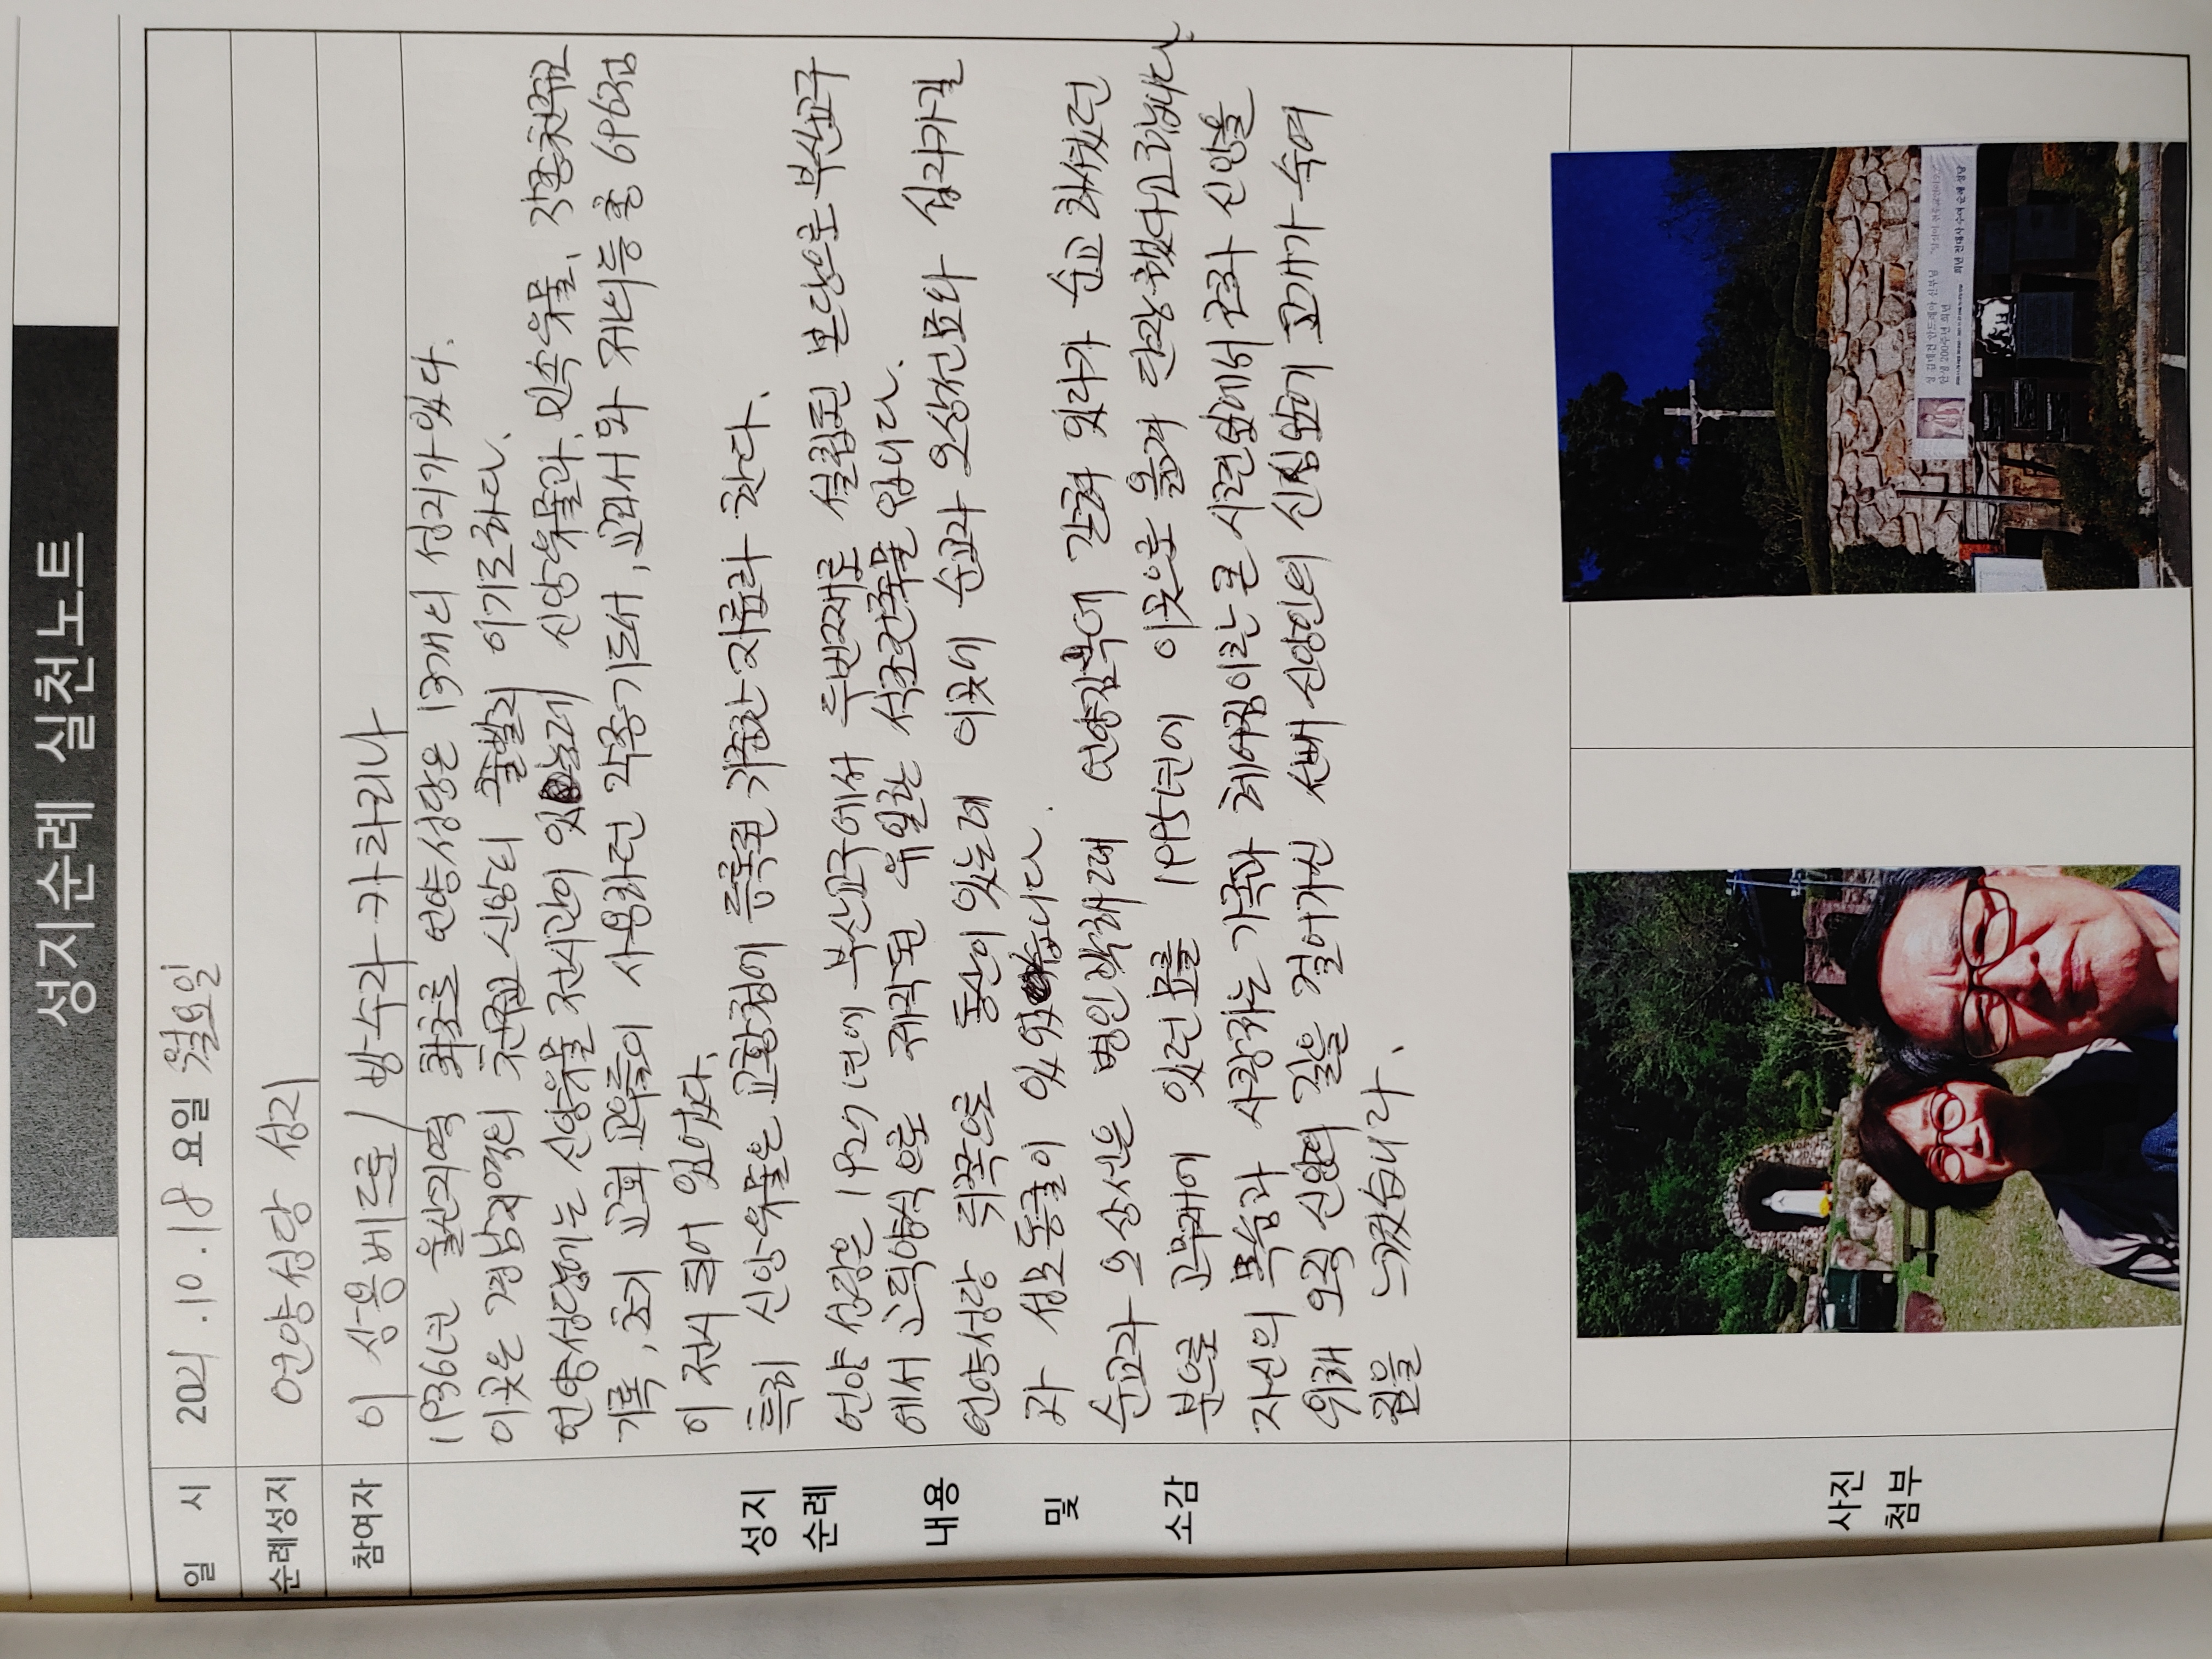 성지순례 실천노트
일 시 2021.10.18 요일 월요일
순례성지 언양성당 성지
참여자 이 상용베드로/ 방수라 카타리나
1936년 울산지역 최초로 언양성당은 13개의 성지가 있다.
이곳은 경남지역의 천주교 신앙의 출발지 이기도하다.
언양성당에는 신앙유물 전시관이 있는데 신앙유물과, 민속유물, 각종천주교
기록, 초기 교회 교우들이 사용하던 각종기도서, 교리서와 제의등 총 696점
이 전시 되어 있었다.
특히 신앙유물은 교황청에 등록된 귀중한 자료라 한다.
언양 성당은 1927년에 부산교구에서 두번째로 설립된 본당으로 부산교구
에서 고딕양식으로 제작된 유일한 석조건축물 입니다.
언양성당 뒤쪽으로 동산이 있는데 이곳에 순교자 오상선묘와 십자가길
과 성모동굴이 있었습니다.
순교자 오상선은 병인박해때 언양감옥에 갇혀 있다가 순교 하셨던
분으로 고무재에 있던 묘를 1995년에 이곳으로 옮겨 단장했다고합니다.
자신의 목숨과 사랑하는 가족과 헤어짐이란 큰 시련앞에서 신앙을
위해 오직 신앙의 길을 걸어가신 선배 신앙인의 신심앞에 고개가 숙여
짐을 느꼈습니다.
성지
순례
내용
및
소감
사진
첨부
성 김대건 안드레아 신부님
탄생 200주년 희년
"당신이 천주교인이오?"
희년 전대사 수여 순례 성당